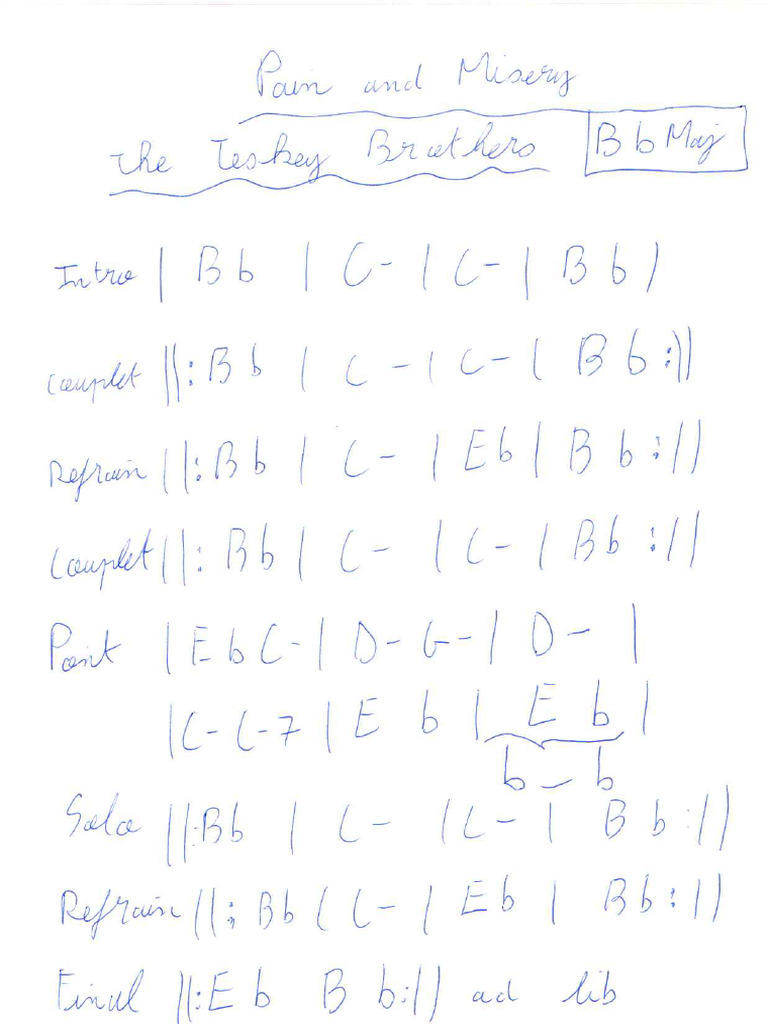 Pain and Misery
The Teskey Brothers Bb Maj
Intro | Bb | C- | C- | Bb |
Couplet ||: Bb | C- | C- | Bb :||
Refrain ||: Bb | C- | Eb | Bb :||
Couplet ||: Bb | C- | C- | Bb :||
Pont | Eb C- | D- G- | D- |
| C- C-7 | Eb | Eb |
b_b
Solo ||: Bb | C- | C- | Bb :||
Refrain ||: Bb | C- | Eb | Bb :||
Final ||: Eb Bb :|| ad lib